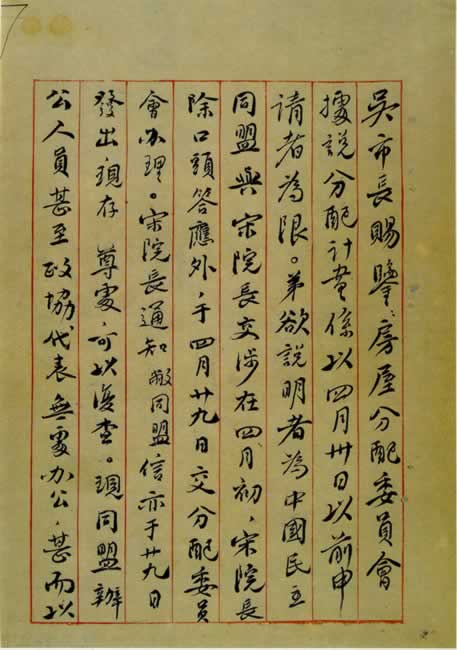 吳市長賜鑒：房屋分配委員會
據說分配計畫係以四月卅日以前申
請者為限。弟欲說明者為中國民主
同盟與宋院長交涉在四月初，宋院長
除口頭答應外，于四月廿九日交分配委員
會办理。宋院長通知敝同盟信亦于廿九日
發出，現存 尊處，可以復查。現同盟辦
公人員甚至政協代表無處办公，甚而以